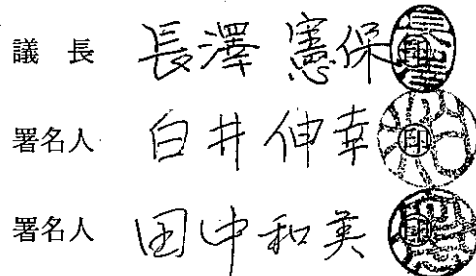 議 長 長澤 憲保 ㊞
署名人 白井 伸幸 ㊞
署名人 田中 和英 ㊞